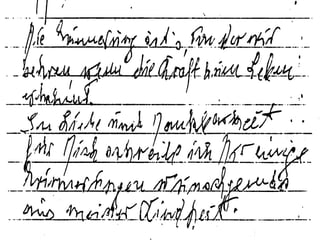 Die Erinnerung ist's, von der wir
zehren wenn die Kraft eines Leben
In Liebe und Dankbarkeit
für Dich schreibe ich Dir einige
Erinnerungen
aus meiner Kindheit.